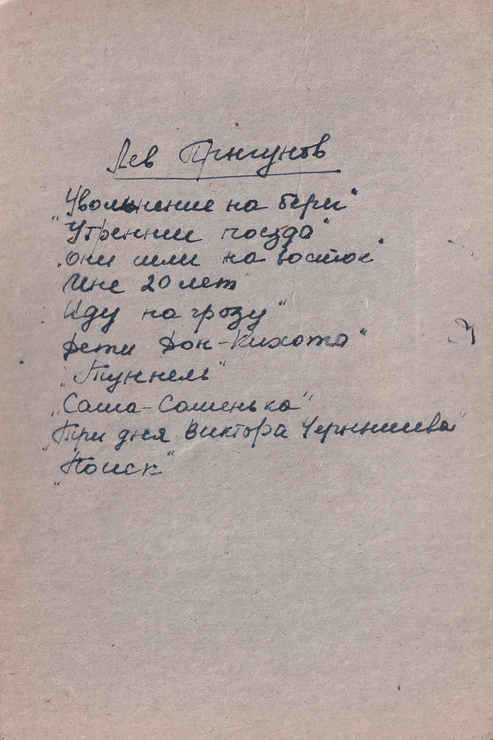 Лев Прыгунов
"Увольнение на берег"
"Утренние поезда"
"Они шли на восток"
Мне 20 лет"
"Иду на грозу"
Дети Дон-Кихота"
"Туннель"
"Саша-Сашенька"
"Три дня Виктора Чернышева"
"Поиск"